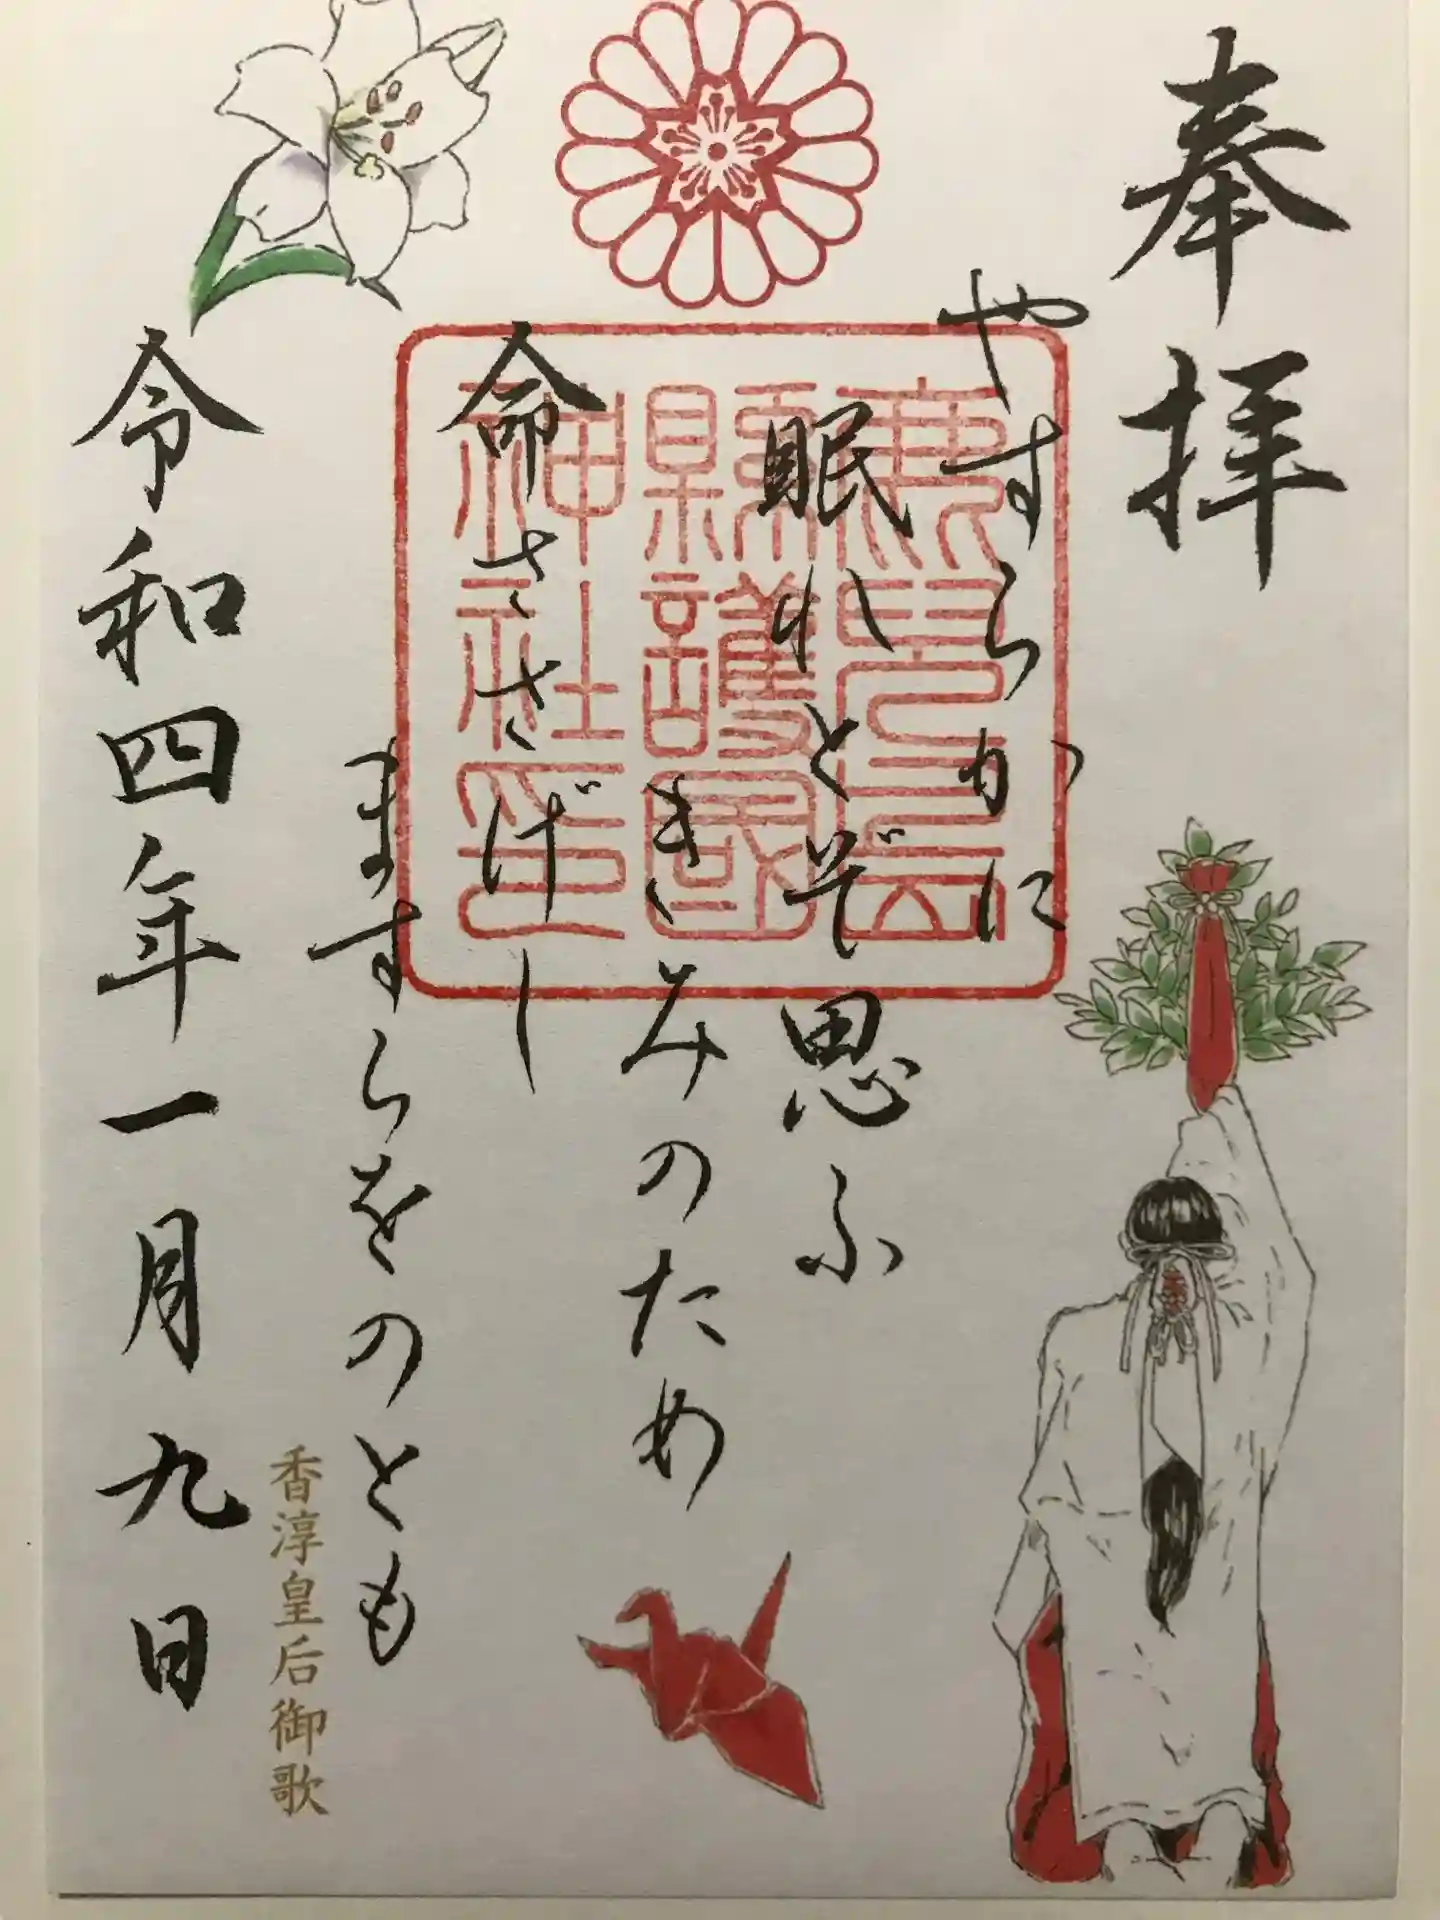 奉拝
やすらかに
眠れとぞ思ふ
きみのため
命ささげし
ますらをのとも
香淳皇后御歌
令和四年一月九日
縣護國
神社印